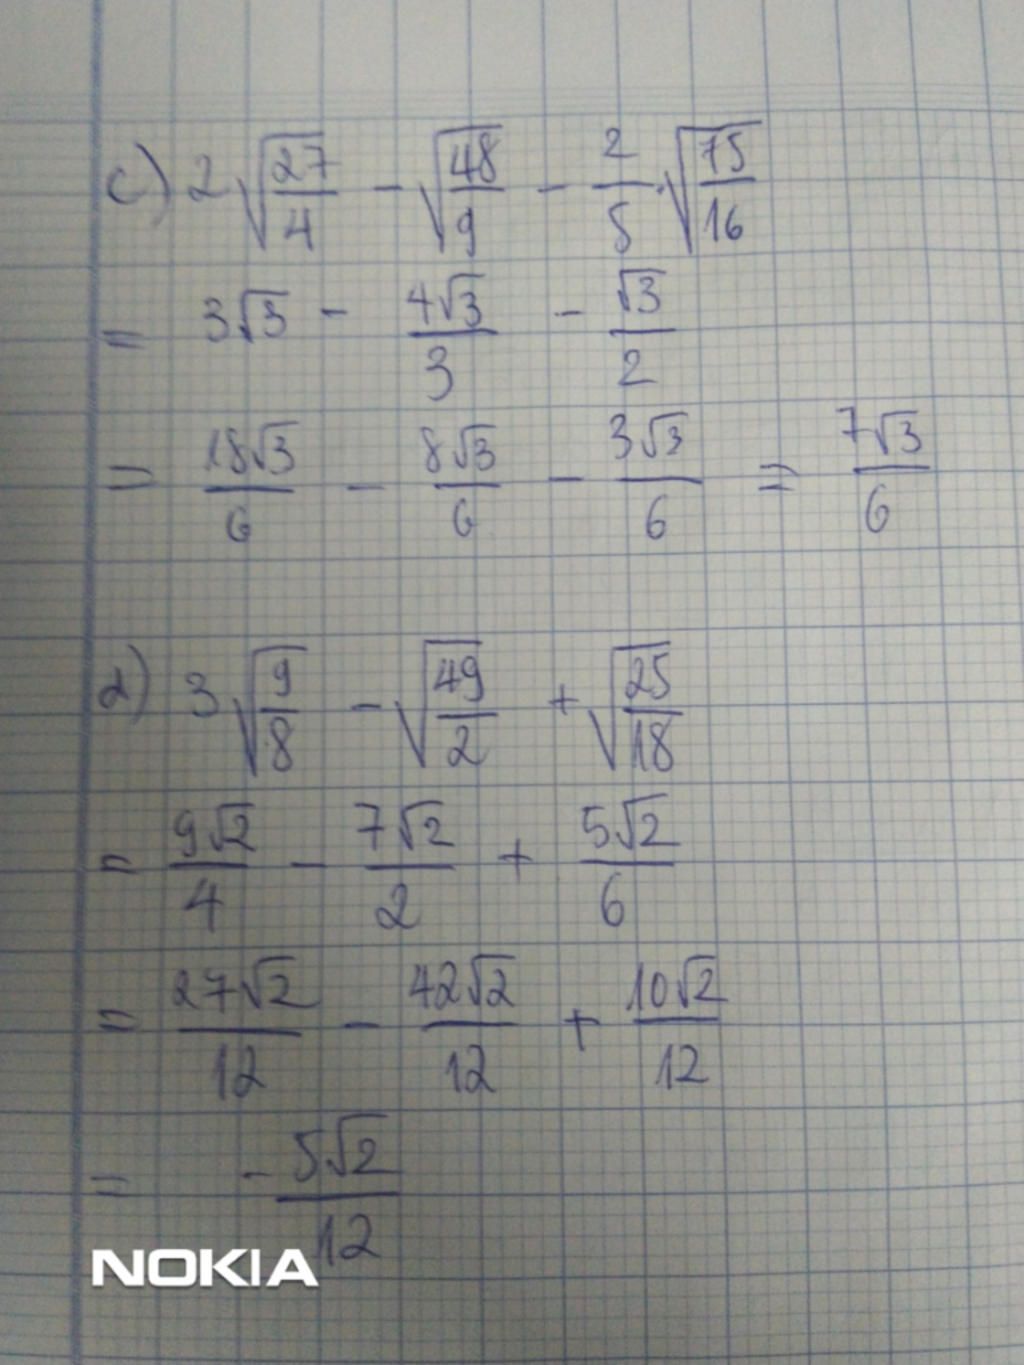 c) 2√(27/4) - √(48/9) - 2/5 · √(75/16)
= 3√3 - 4√3/3 - √3/2
= 18√3/6 - 8√3/6 - 3√3/6 = 7√3/6
d) 3√(9/8) - √(49/2) + √(25/18)
= 9√2/4 - 7√2/2 + 5√2/6
= 27√2/12 - 42√2/12 + 10√2/12
= -5√2/12
NOKIA